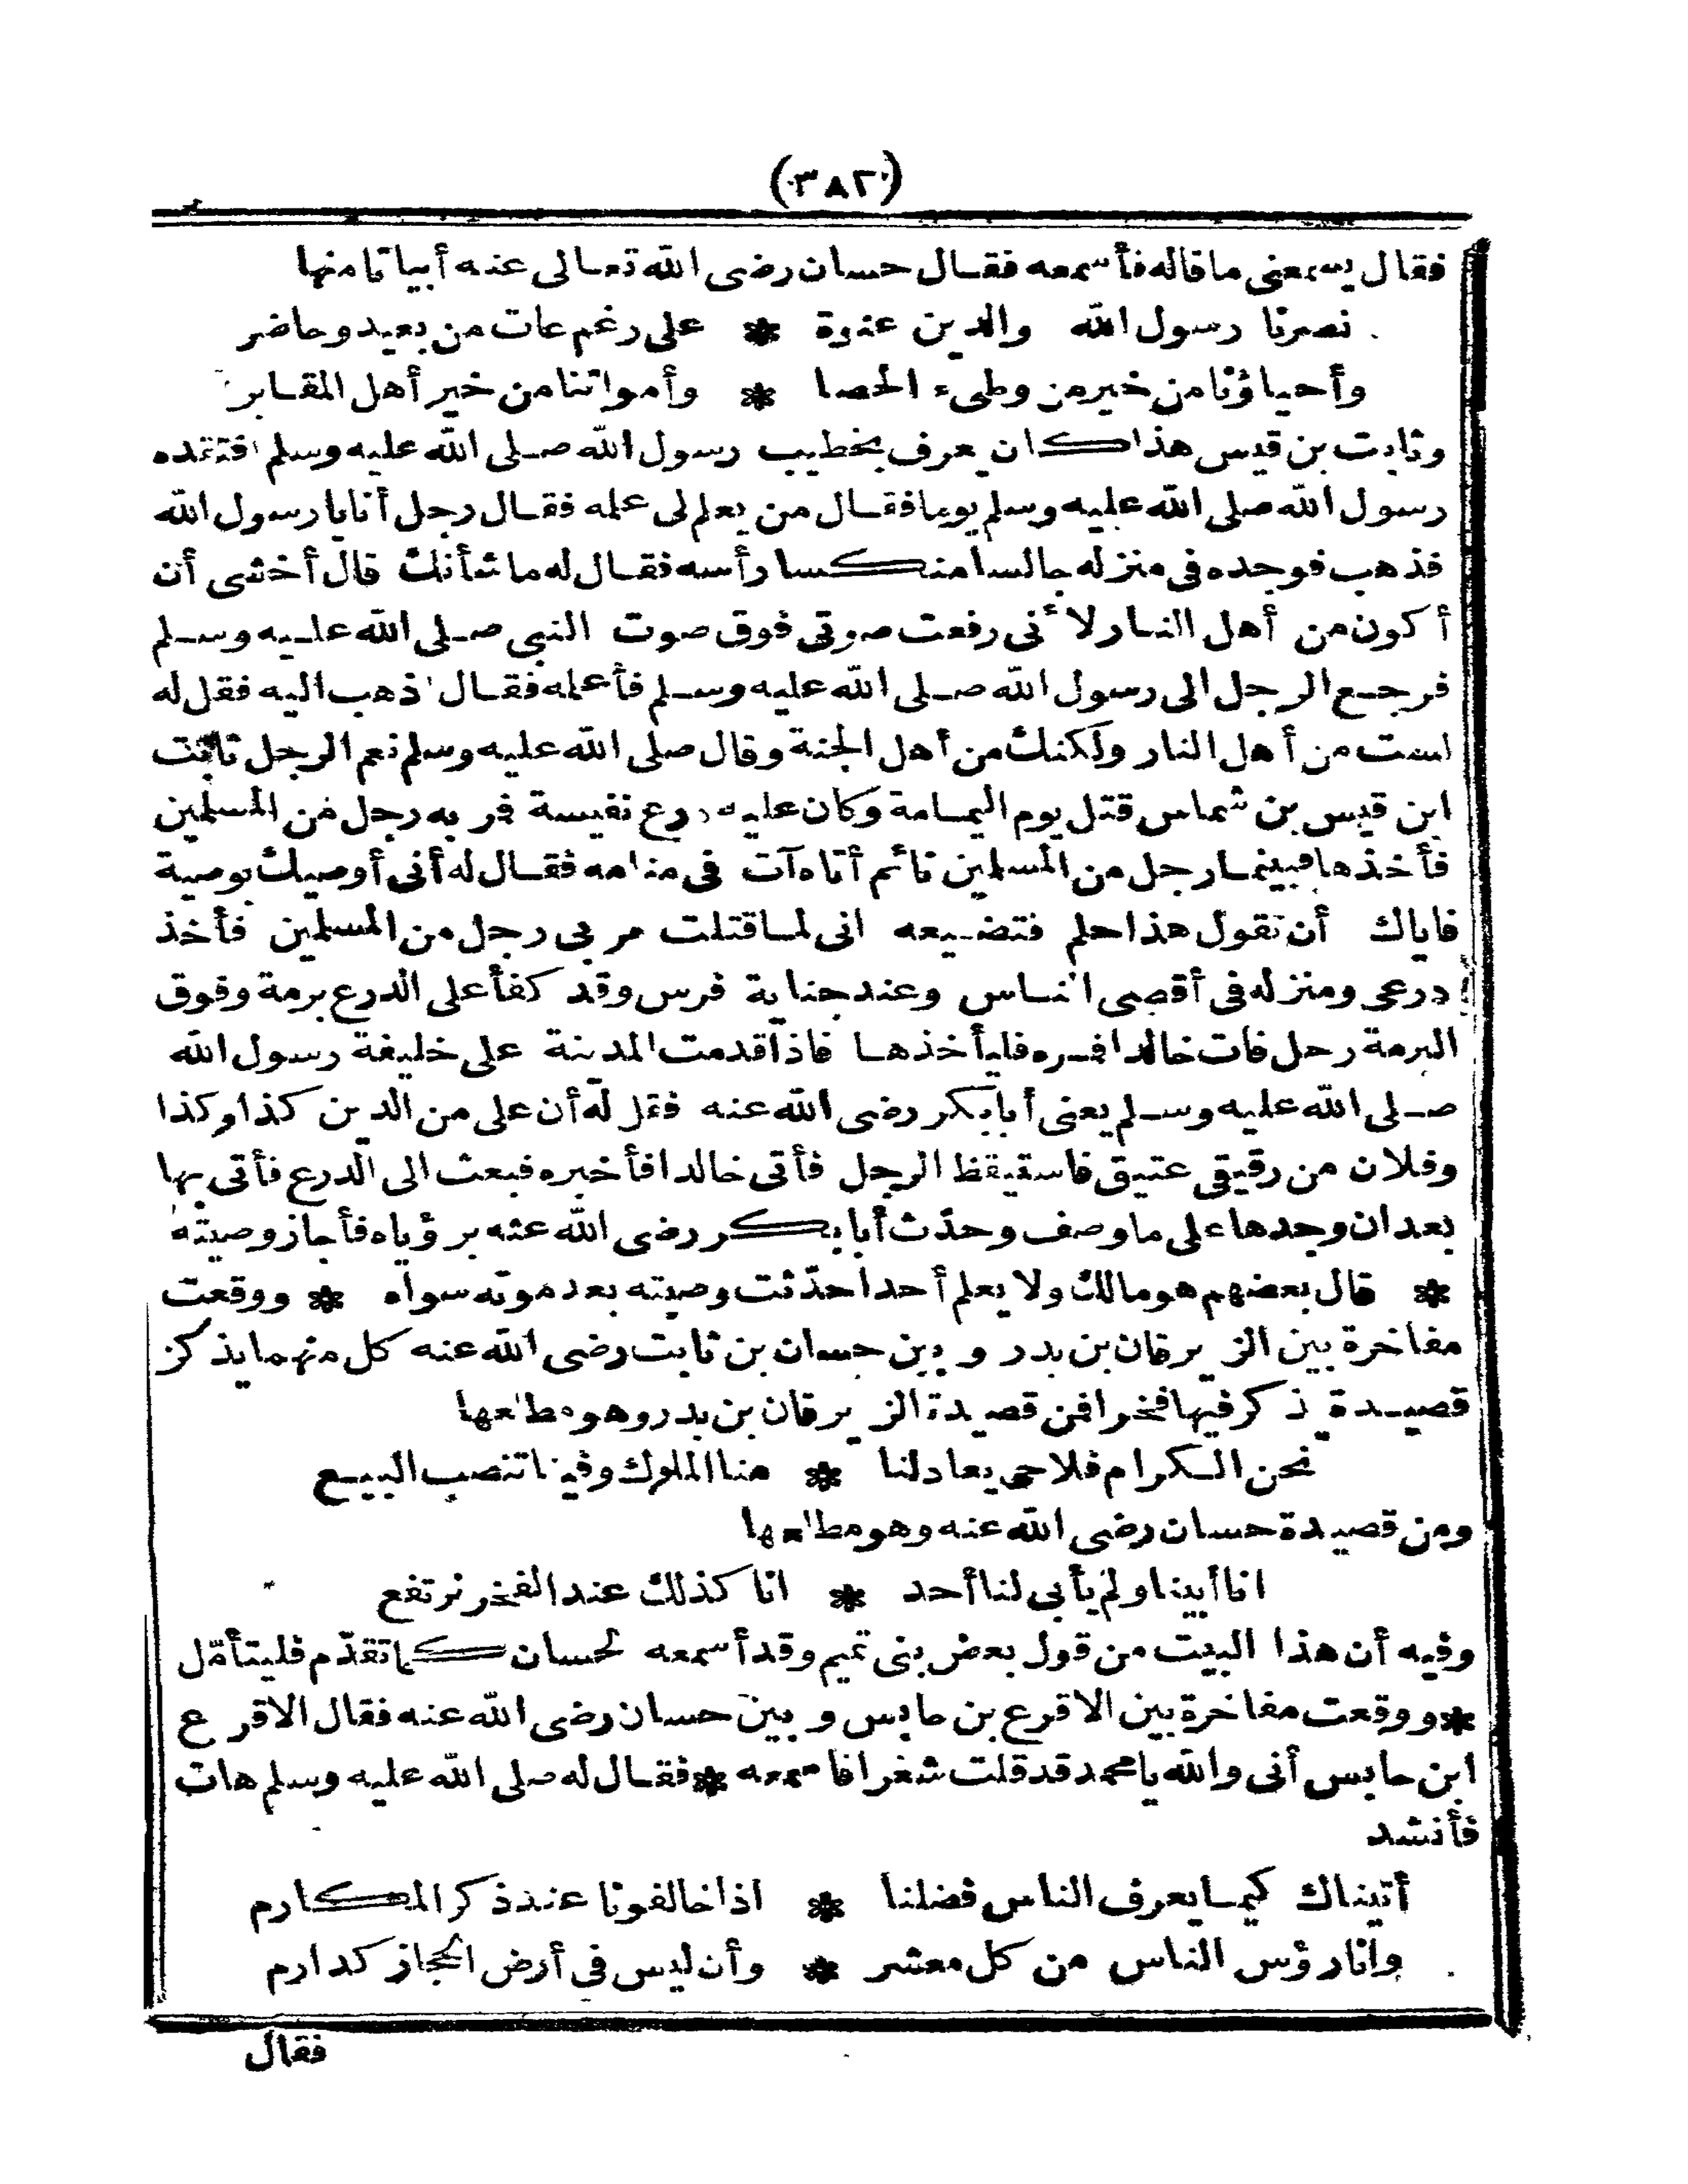 (٣٨٢)
فقال يسمعنى ما قاله فأسمعه فقال حسان رضى الله تعالى عنه أبياتا منها
نصرنا رسول الله والدين عنوة * على رغم عات من بعيد وحاضر
وأحياؤنا من خير من وطىء الحصا * وأمواتنا من خير أهل المقابر
وثابت بن قيس هذا كان يعرف بخطيب رسول الله صلى الله عليه وسلم افتقده
رسول الله صلى الله عليه وسلم يوما فقال من يعلم لى علمه فقال رجل أنا يا رسول الله
فذهب فوجده فى منزله جالسا منكسا رأسه فقال له ما شأنك قال أخشى أن
أكون من أهل النار لأنى رفعت صوتى فوق صوت النبى صلى الله عليه وسلم
فرجع الرجل الى رسول الله صلى الله عليه وسلم فأعلمه فقال اذهب اليه فقل له
لست من أهل النار ولكنك من أهل الجنة وقال صلى الله عليه وسلم نعم الرجل ثابت
ابن قيس بن شماس قتل يوم اليمامة وكان عليه درع نفيسة فمر به رجل من المسلمين
فأخذها فبينما رجل من المسلمين نائم أتاه آت فى منامه فقال له أنى أوصيك بوصية
فاياك أن تقول هذا حلم فتضيعه انى لما قتلت مر بى رجل من المسلمين فأخذ
درعى ومنزله فى أقصى الناس وعند جنابة فرس وقد كفأ على الدرع برمة وفوق
البرمة رحل فات خالدا فمره فليأخذها فاذا قدمت المدينة على خليفة رسول الله
صلى الله عليه وسلم يعنى أبا بكر رضى الله عنه فقل له أن على من الدين كذا وكذا
وفلان من رقيقى عتيق فاستيقظ الرجل فأتى خالدا فأخبره فبعث الى الدرع فأتى بها
بعد ان وجدها على ما وصف وحدّث أبا بكر رضى الله عنه برؤياه فأجاز وصيته
* قال بعضهم هو مالك ولا يعلم أحدا حدّثت وصيته بعد موته سواه * ووقعت
مفاخرة بين الزبرقان بن بدر وبين حسان بن ثابت رضى الله عنه كل منهما يذكر
قصيدة يذكر فيها فخرا فمن قصيدة الزبرقان بن بدر وهو مطلعها
نحن الكرام فلا حى يعادلنا * منا الملوك وفينا تنصب البيع
ومن قصيدة حسان رضى الله عنه وهو مطلعها
انا أبينا ولم يأبى لنا أحد * انا كذلك عند الفخر نرتفع
وفيه أن هذا البيت من قول بعض بنى تميم وقد أسمعه لحسان كما تقدّم فليتأمّل
* ووقعت مفاخرة بين الاقرع بن حابس وبين حسان رضى الله عنه فقال الاقرع
ابن حابس أنى والله يا محمد قد قلت شعرا فاسمعه * فقال له صلى الله عليه وسلم هات
فأنشد
أتيناك كيما يعرف الناس فضلنا * اذا خالفونا عند ذكر المكارم
وانا رؤس الناس من كل معشر * وأن ليس فى أرض الحجاز كدارم
فقال